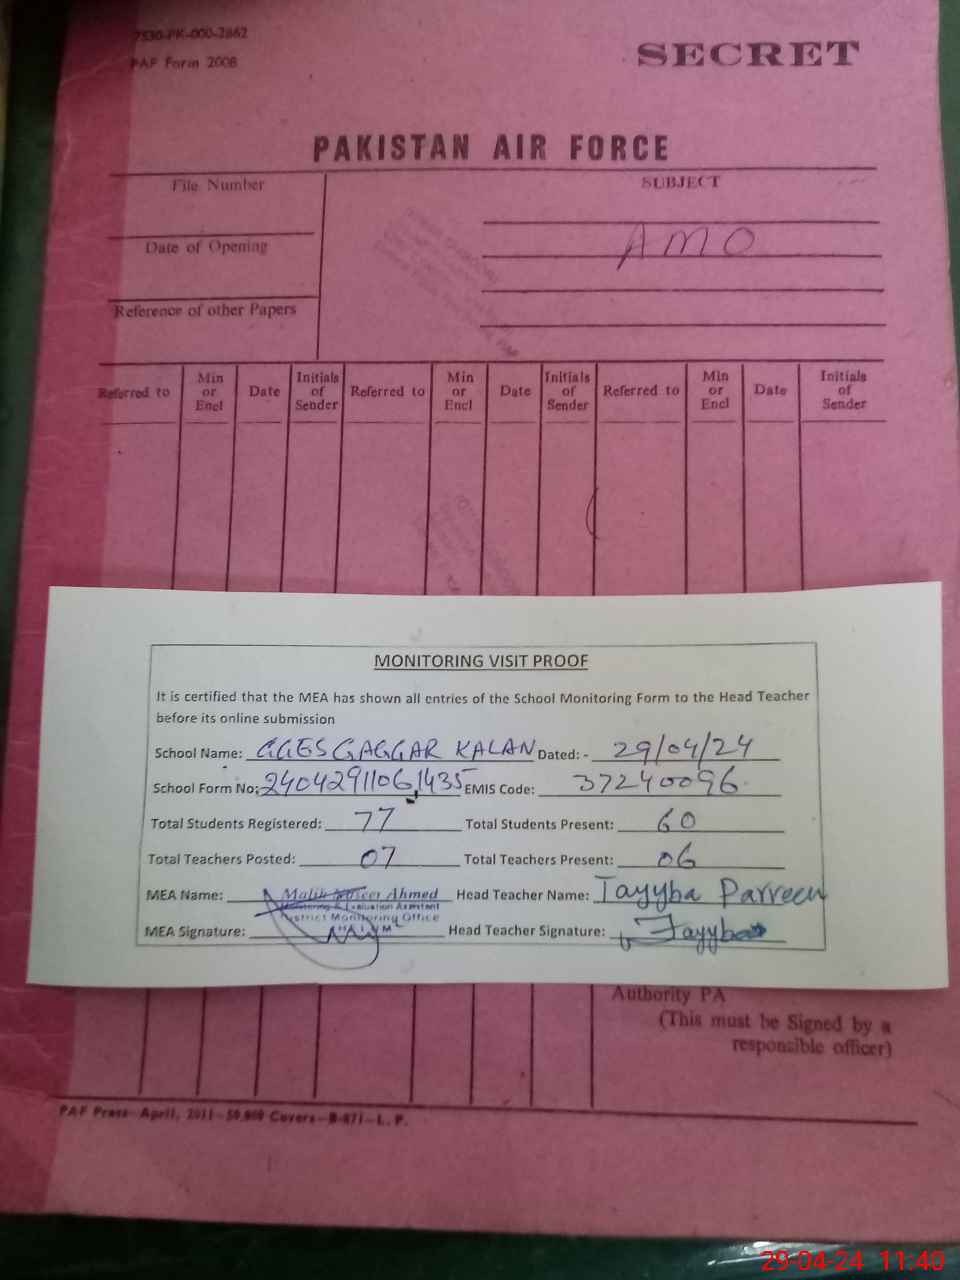 7530-PK-000-2862
PAF Form 2008
SECRET
PAKISTAN AIR FORCE
File Number
SUBJECT
Date of Opening
AMO
Reference of other Papers
Referred to Min or Encl Date Initials of Sender Referred to Min or Encl Date Initials of Sender Referred to Min or Encl Date Initials of Sender
MONITORING VISIT PROOF
It is certified that the MEA has shown all entries of the School Monitoring Form to the Head Teacher
before its online submission
School Name: GGES GAGGAR KALAN Dated: - 29/04/24
School Form No: 24042911061435 EMIS Code: 37240096
Total Students Registered: 77 Total Students Present: 60
Total Teachers Posted: 07 Total Teachers Present: 06
MEA Name: Malik Naseer Ahmed Head Teacher Name: Tayyba Parveen
Monitoring & Evaluation Assistant
District Monitoring Office
MEA Signature: Head Teacher Signature: Tayyba
Authority PA
(This must be Signed by a
responsible officer)
PAF Press—April, 2011—50,000 Covers—B-871—L. P.
29-04-24 11:40